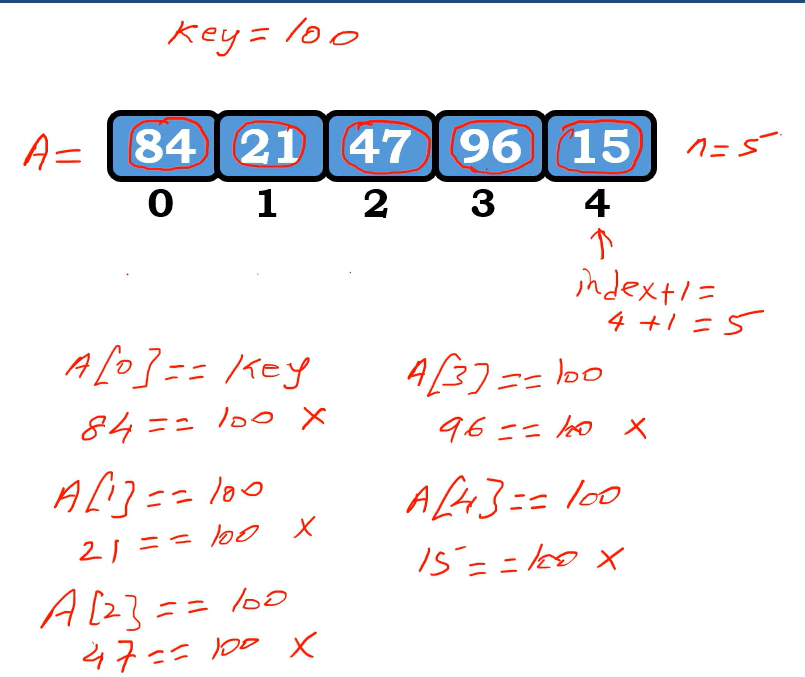 Key = 100
A = 84 21 47 96 15 n = 5
0 1 2 3 4
index+1 =
4 + 1 = 5
A[0] == Key
84 == 100 X
A[1] == 100
21 == 100 X
A[2] == 100
47 == 100 X
A[3] == 100
96 == 100 X
A[4] == 100
15 == 100 X